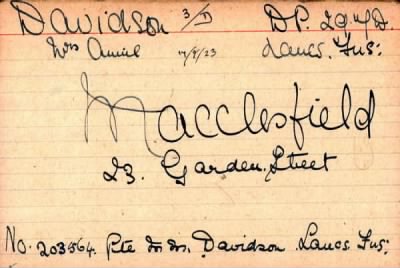 Davidson 3/D D.P. 29/4/2.
Mrs Annie 7/9/23 Lancs. Fus:
Macclesfield
23. Garden Street
No. 203564. Pte Davidson. Lancs Fus: